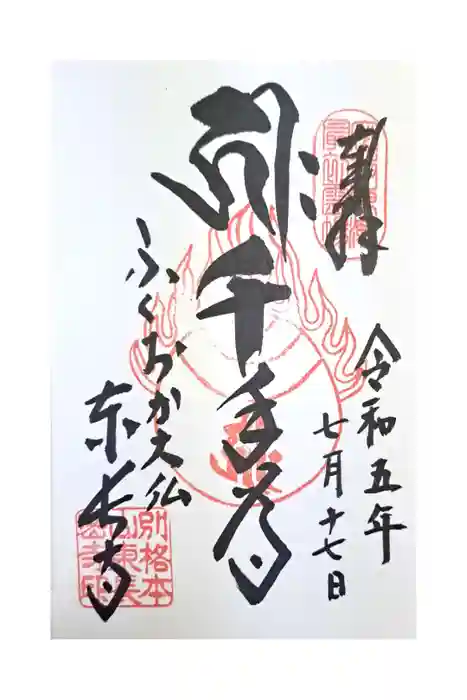 奉拝
令和五年
七月十七日
千手尊
ふくおか大仏
東長寺
別格本
山東長
寺印